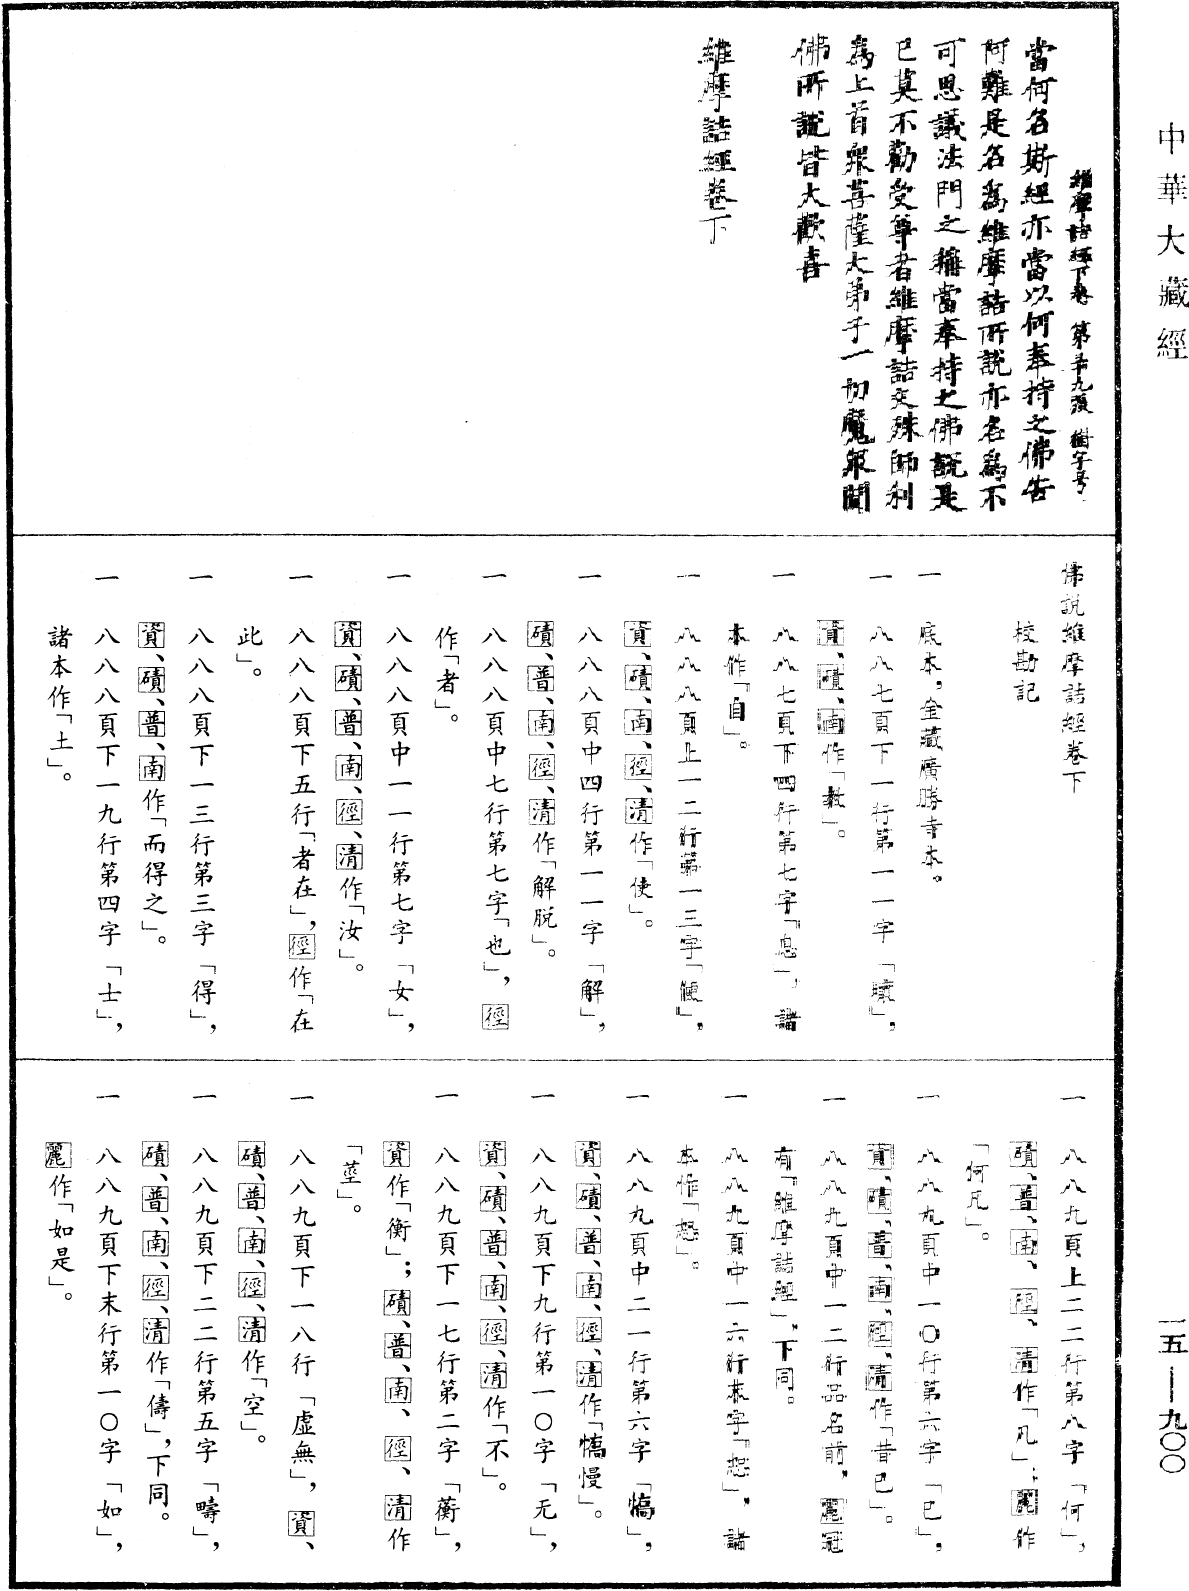 中華大藏經
維摩詰經下卷 第三十九張 樹字号
當何名斯經亦當以何奉持之佛告
阿難是名為維摩詰所説亦名為不
可思議法門之稱當奉持之佛説是
已莫不勸受尊者維摩詰文殊師利
為上首眾菩薩大弟子一切魔眾聞
佛所説皆大歡喜
維摩詰經卷下
佛説維摩詰經卷下
校勘記
一 底本,金藏廣勝寺本。
一 八八七頁下一行第一一字「
資、磧、南作「教」。
一 八八七頁下四行第七字「息」,諸
本作「自」。
一 八八八頁上一二行第一三字「便」,
資、磧、南、徑、清作「使」。
一 八八八頁中四行第一一字「解」,
磧、普、南、徑、清作「解脱」。
一 八八八頁中七行第七字「也」,徑
作「者」。
一 八八八頁中一一行第七字「女」,
資、磧、普、南、徑、清作「汝」。
一 八八八頁下五行「者在」,徑作「在
此」。
一 八八八頁下一三行第三字「得」,
資、磧、普、南作「而得之」。
一 八八八頁下一九行第四字「士」,
諸本作「土」。
一 八八九頁上二二行第八字「何」,
磧、普、南、徑、清作「凡」;麗作
「何凡」。
一 八八九頁中一〇行第六字「已」,
資、磧、普、南、徑、清作「昔已」。
一 八八九頁中一二行品名前,麗冠
有「維摩詰經」,下同。
一 八八九頁中一六行末字「恕」,諸
本作「怒」。
一 八八九頁中二一行第六字「憍」,
資、磧、普、南、徑、清作「憍慢」。
一 八八九頁下九行第一〇字「无」,
資、磧、普、南、徑、清作「不」。
一 八八九頁下一七行第二字「蘅」,
資作「衡」;磧、普、南、徑、清作
「莖」。
一 八八九頁下一八行「虛無」,資、
磧、普、南、徑、清作「空」。
一 八八九頁下二二行第五字「疇」,
磧、普、南、徑、清作「儔」,下同。
一 八八九頁下末行第一〇字「如」,
麗作「如是」。
一五——九〇〇